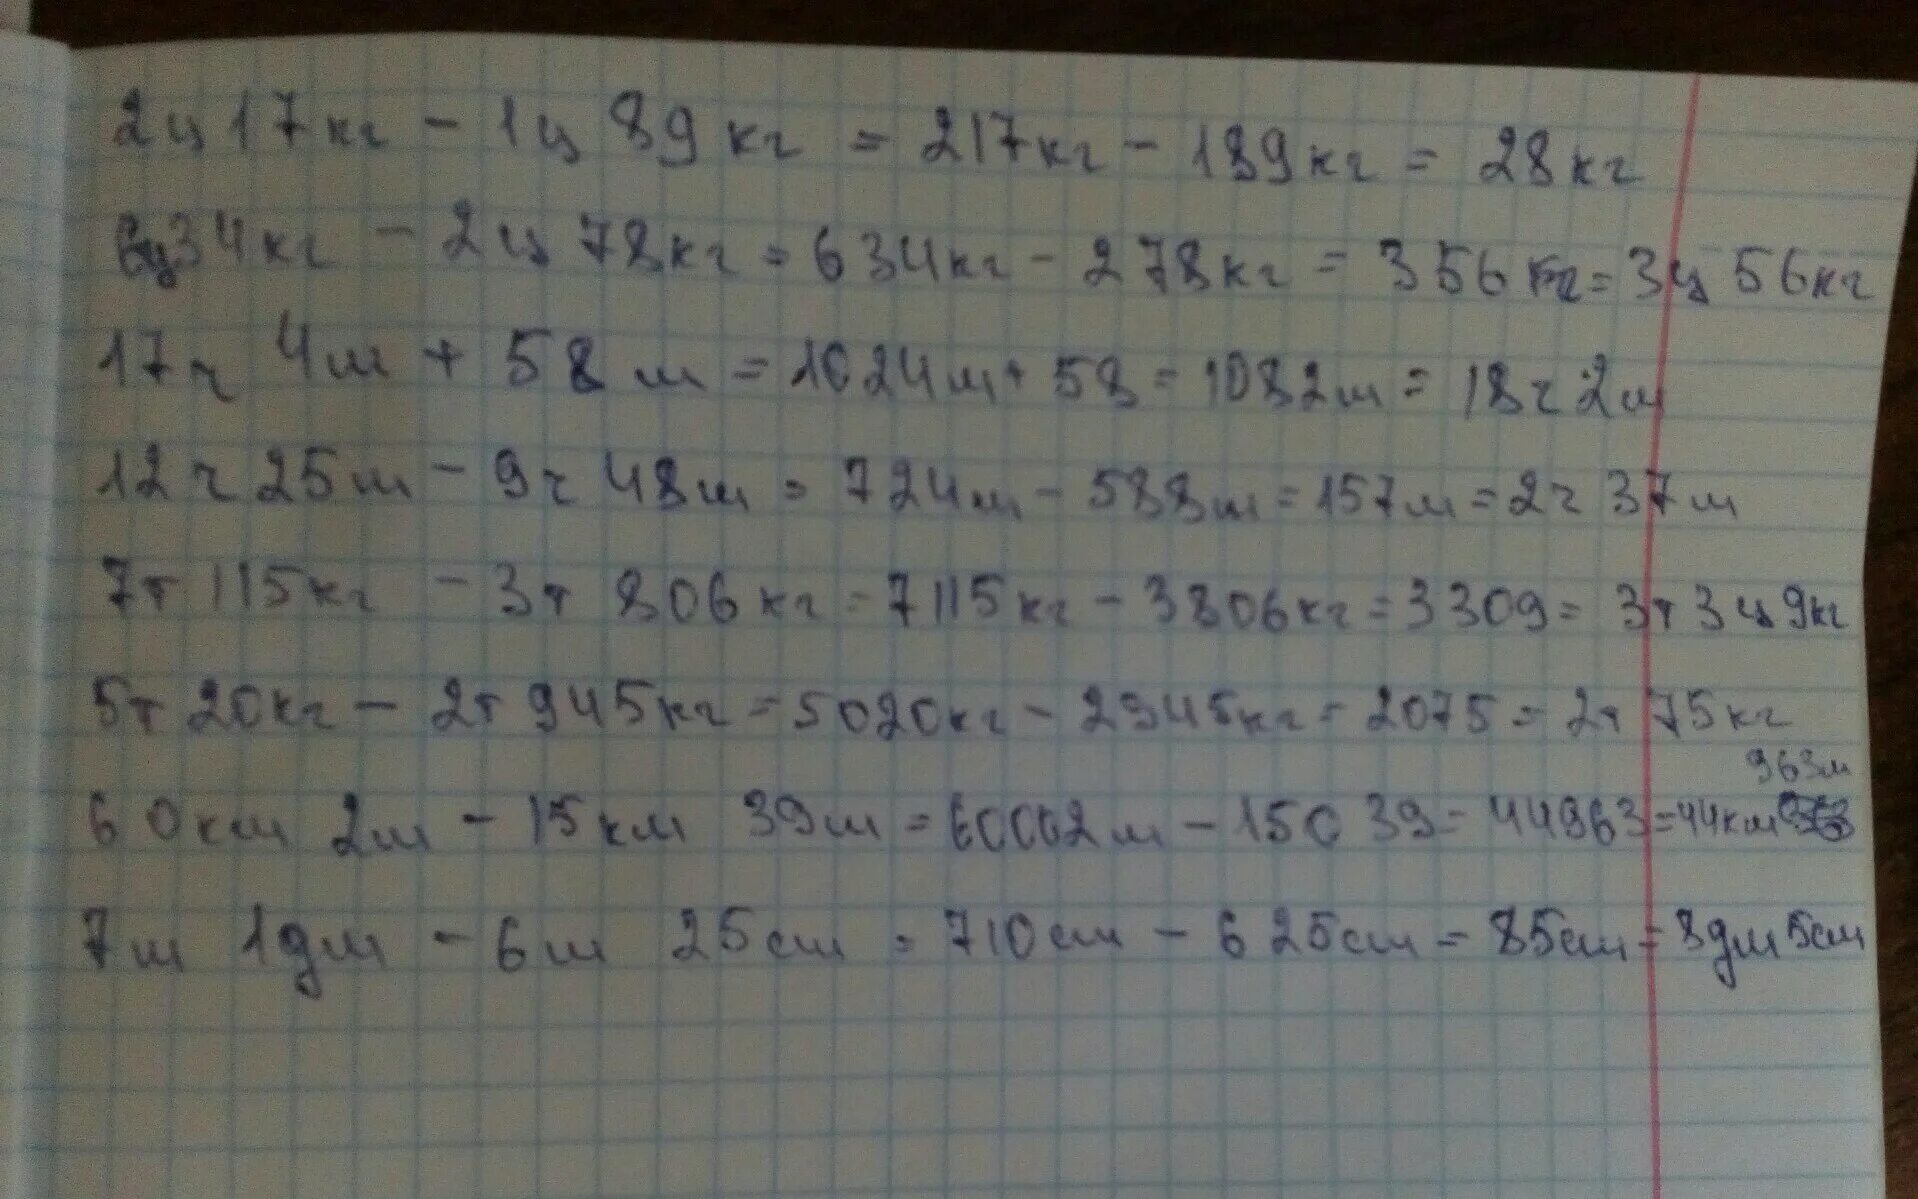 2ц 17кг - 1ц 89кг = 217кг - 189кг = 28кг
6ц34кг - 2ц 78кг = 634кг - 278кг = 356кг = 3ц 56кг
17ч 4м + 58м = 1024м + 58 = 1082м = 18ч 2м
12ч 25м - 9ч 48м = 724м - 588м = 157м = 2ч 37м
7т 115кг - 3т 806кг = 7115кг - 3806кг = 3309 = 3т 3ц 9кг
5т 20кг - 2т 945кг = 5020кг - 2945кг = 2075 = 2т 75кг
60км 2м - 15км 39м = 60002м - 15039 = 44963 = 44км 963м
7м 1дм - 6м 25см = 710см - 625см = 85см = 8дм 5см